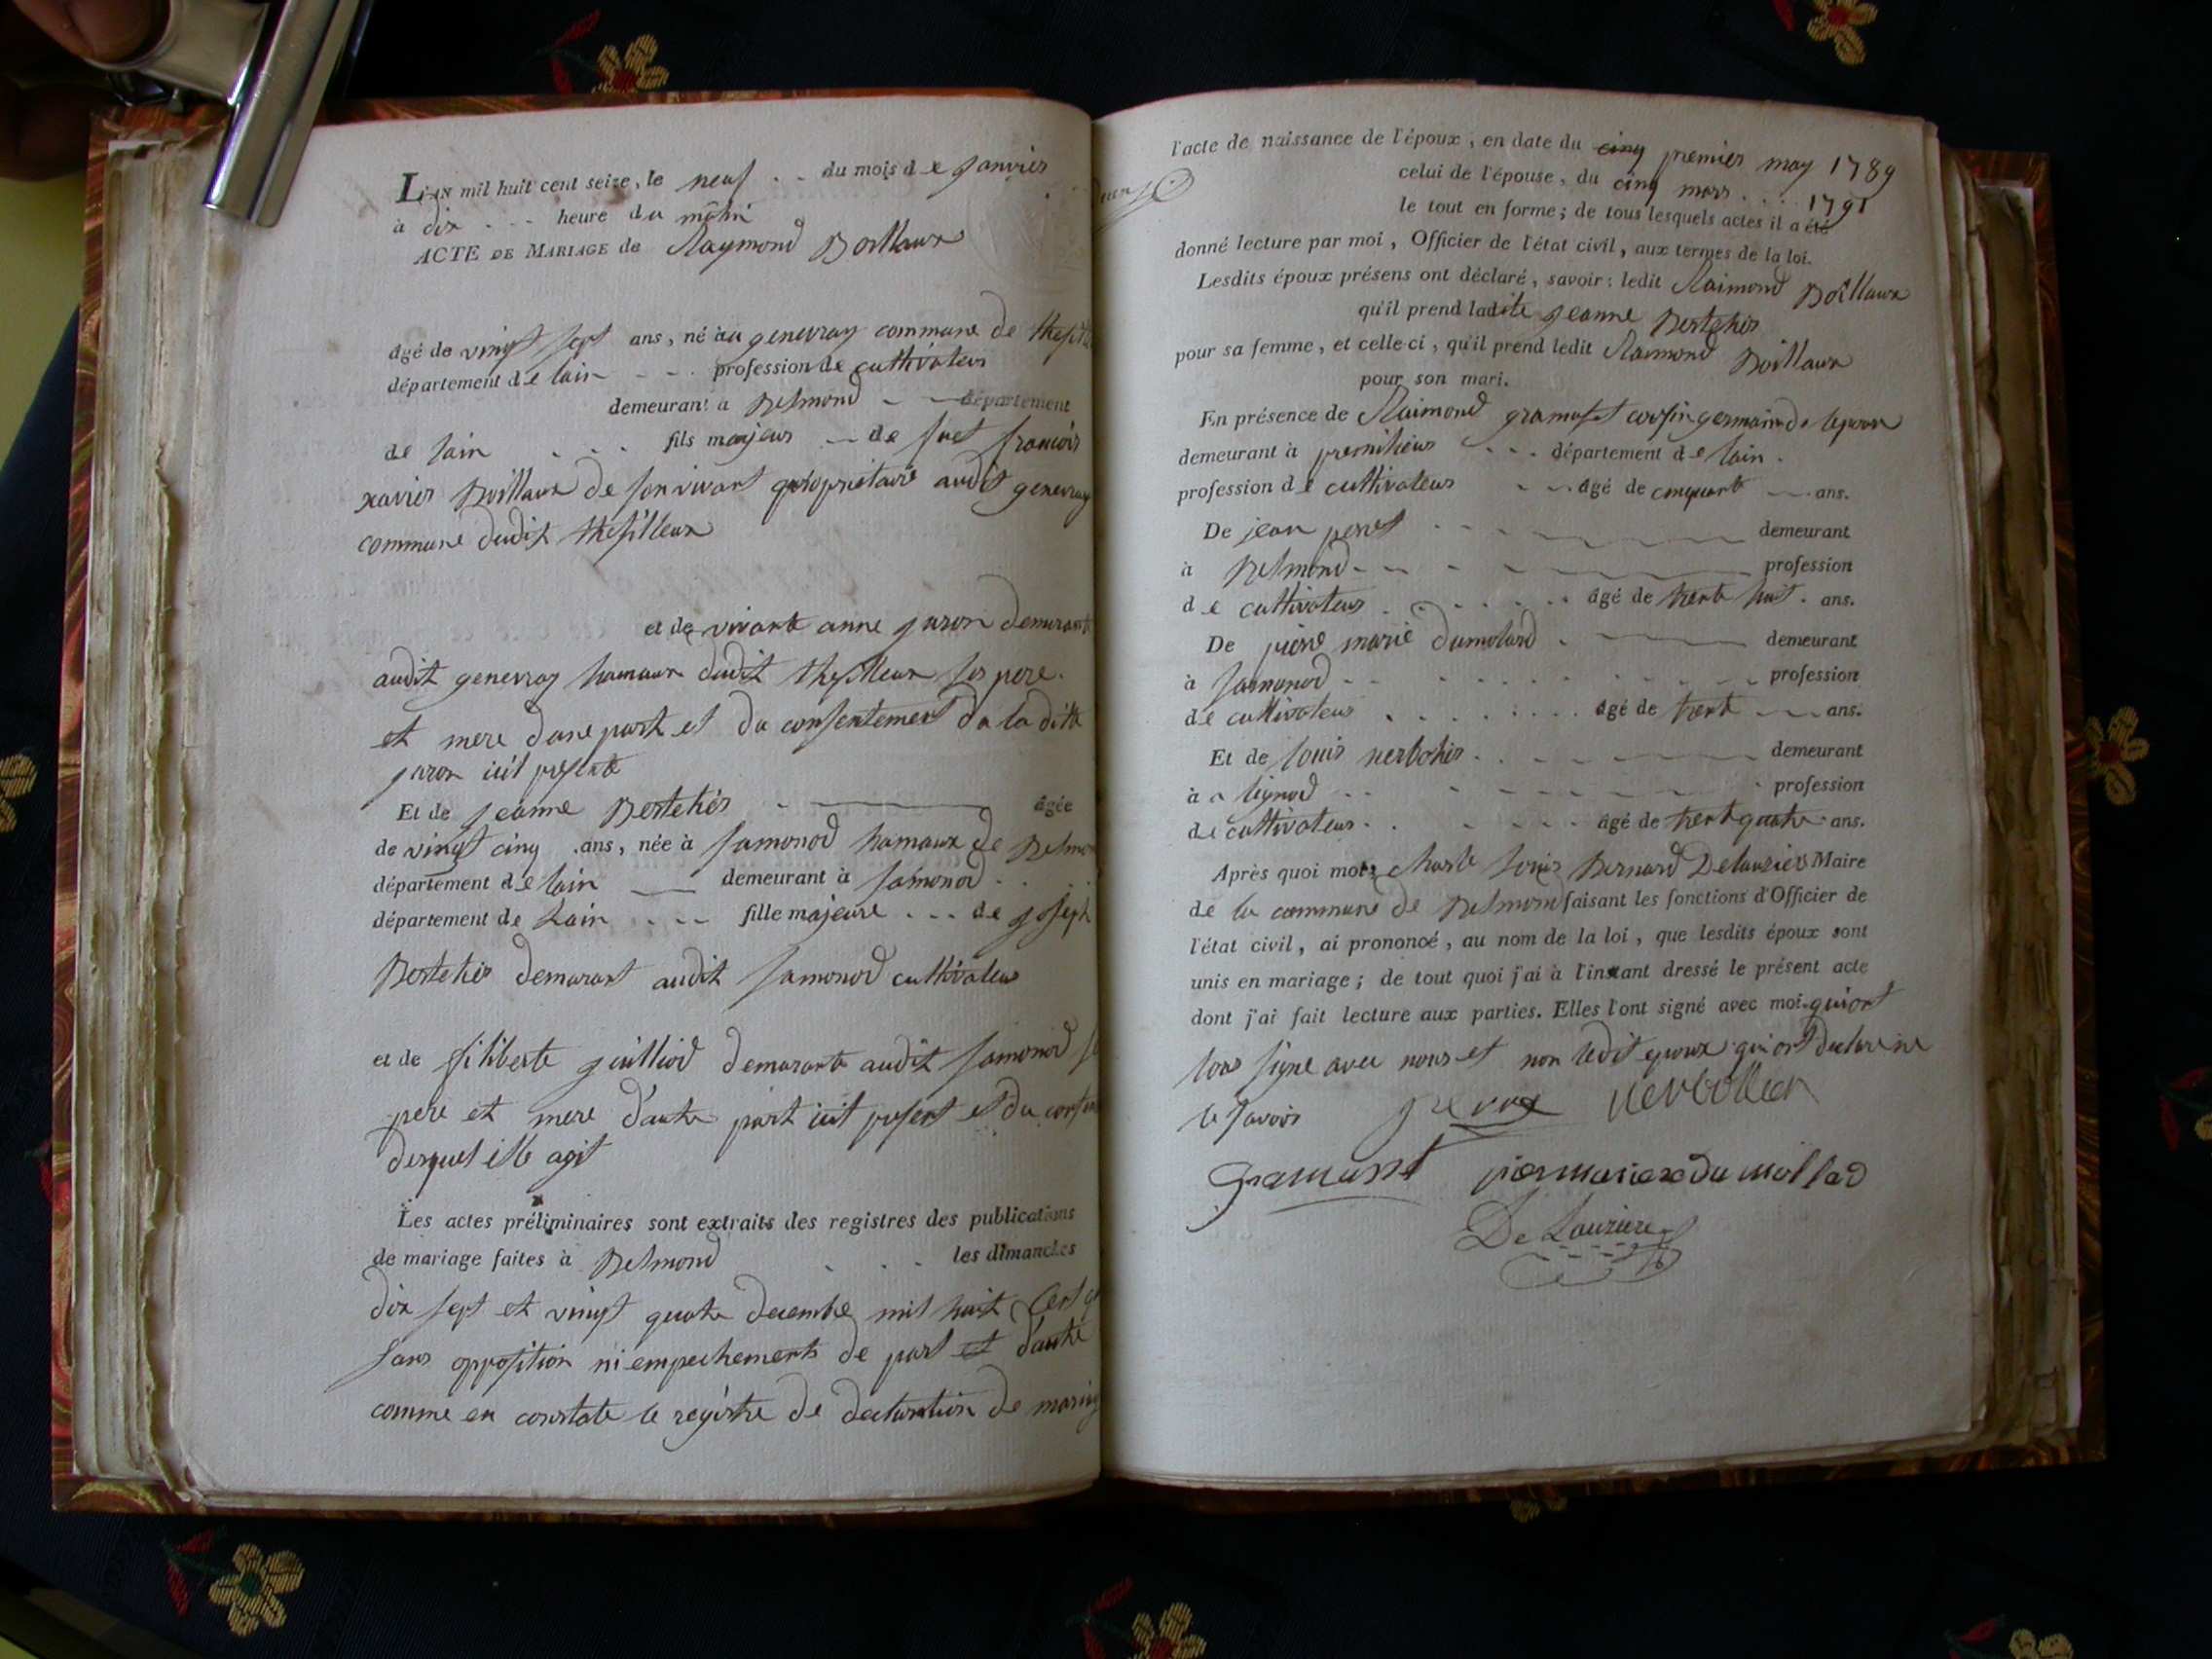 L'AN mil huit cent seize, le neuf . . du mois d e janvier
à dix . . . heure du matin
ACTE DE MARIAGE de Raymond Boillaux
âgé de vingt sept ans, né au genevray commune de
département de lain - - - profession de cultivateur
demeurant à Belmond - - département
de lain . . . fils majeur - de fuet francois
xavier Boillaux de son vivant propriétaire audit genevray
commune dudit thesilleux
et de vivante anne juron demurante
audit genevray hamaux dudit thesilleux ses pere
et mere dune part et du consentement da la ditte
juron icit presente
Et de jeanne Bertehier - âgée
de vingt cinq ans, née à samonod hamaux de
département de lain — demeurant à samonod . .
département de Lain . . . fille majeure . . . de joseph
Bertehier demurant audit samonod cultivateur
et de filiberte guilliod demurante audit samonod
pere et mere d'autre part icit present et du
desquel elle agit
Les actes préliminaires sont extraits des registres des publications
de mariage faites à Belmond . . . les dimanches
dix sept et vingt quatre decembre mil huit cent
sans opposition ni empechements de part et d'autre
comme en constate le registre de declaration de
l'acte de naissance de l'époux, en date du cinq premier may 1789
celui de l'épouse, du cinq mars . . . 1791
le tout en forme; de tous lesquels actes il a été
donné lecture par moi, Officier de l'état civil, aux termes de la loi.
Lesdits époux présens ont déclaré, savoir: ledit Raimond Boillaux
qu'il prend ladite jeanne Bertehier
pour sa femme, et celle-ci, qu'il prend ledit Raimond Boillaux
pour son mari.
En présence de Raimond gramusset cousin germain de lepoux
demeurant à premilieux . . . département d e lain .
profession d e cultivateur - - âgé de cinquante - ans.
De jean perret . . . demeurant
à Belmond - - - profession
d e cultivateur . . . âgé de trente huit . ans.
De pierre marie dumolard . - demeurant
à samonod - - . . . profession
d e cultivateur . . . âgé de trente - ans.
Et de louis nerbohier . . - demeurant
à lignod . . . profession
de cultivateur . . . âgé de trente quatre ans.
Après quoi moi charle louis Bernard Delauzier Maire
de la commune de Belmond faisant les fonctions d'Officier de
l'état civil, ai prononcé, au nom de la loi, que lesdits époux sont
unis en mariage; de tout quoi j'ai à l'instant dressé le présent acte
dont j'ai fait lecture aux parties. Elles l'ont signé avec moi qui ont
tous signe avec nous et non ledit epoux qui ont declare ne
le savoir
gramusset pier marie du mollad
De Lauziere